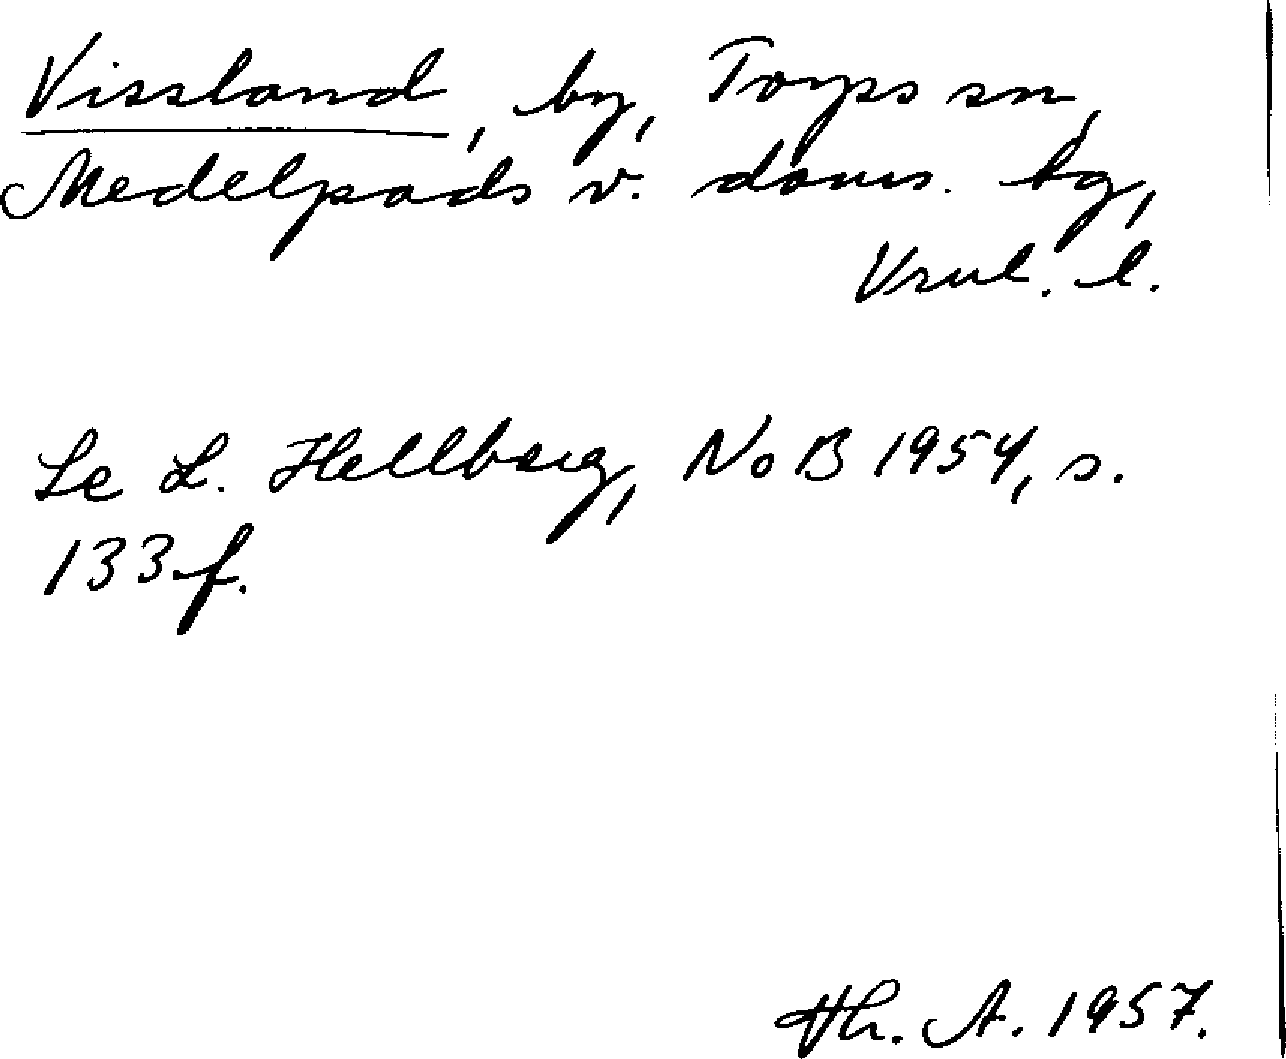 Vissland, by, Torps sn,
Medelpads v. doms. tg,
Vrnl. l.
Se L. Hellberg, NoB 1954, s.
133 f.
Th. A. 1957.